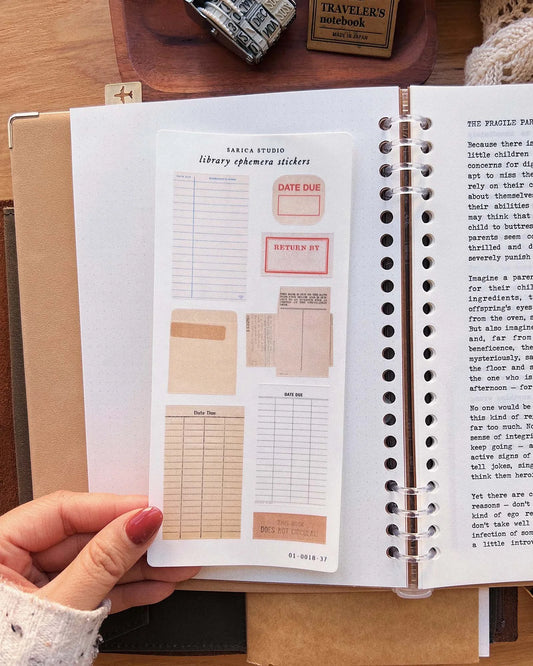 TRAVELER'S
notebook
MADE IN JAPAN
SARICA STUDIO
library ephemera stickers
DATE DUE
RETURN BY
Date Due
DATE DUE
THIS BOOK
DOES NOT CIRCULATE
01-0018-37
THE FRAGILE PAR
Because there is
little children
concerns for
apt to miss the
rely on their c
about themselves
their abilities
may think that
child to buttres
parents seem co
thrilled and d
severely punish
Imagine a paren
for their chil
ingredients, t
offspring's eyes
from the oven, s
But also imagine
and, far from
beneficence, the
mysteriously, sa
the floor and s
the one who is
afternoon — for
No one would be
this kind of re
far too much. No
sense of integri
keep going — a
active signs of
tell jokes, sing
think them heroi
Yet there are c
reasons — don't
kind of ego re
don't take well
infection of som
a little introv